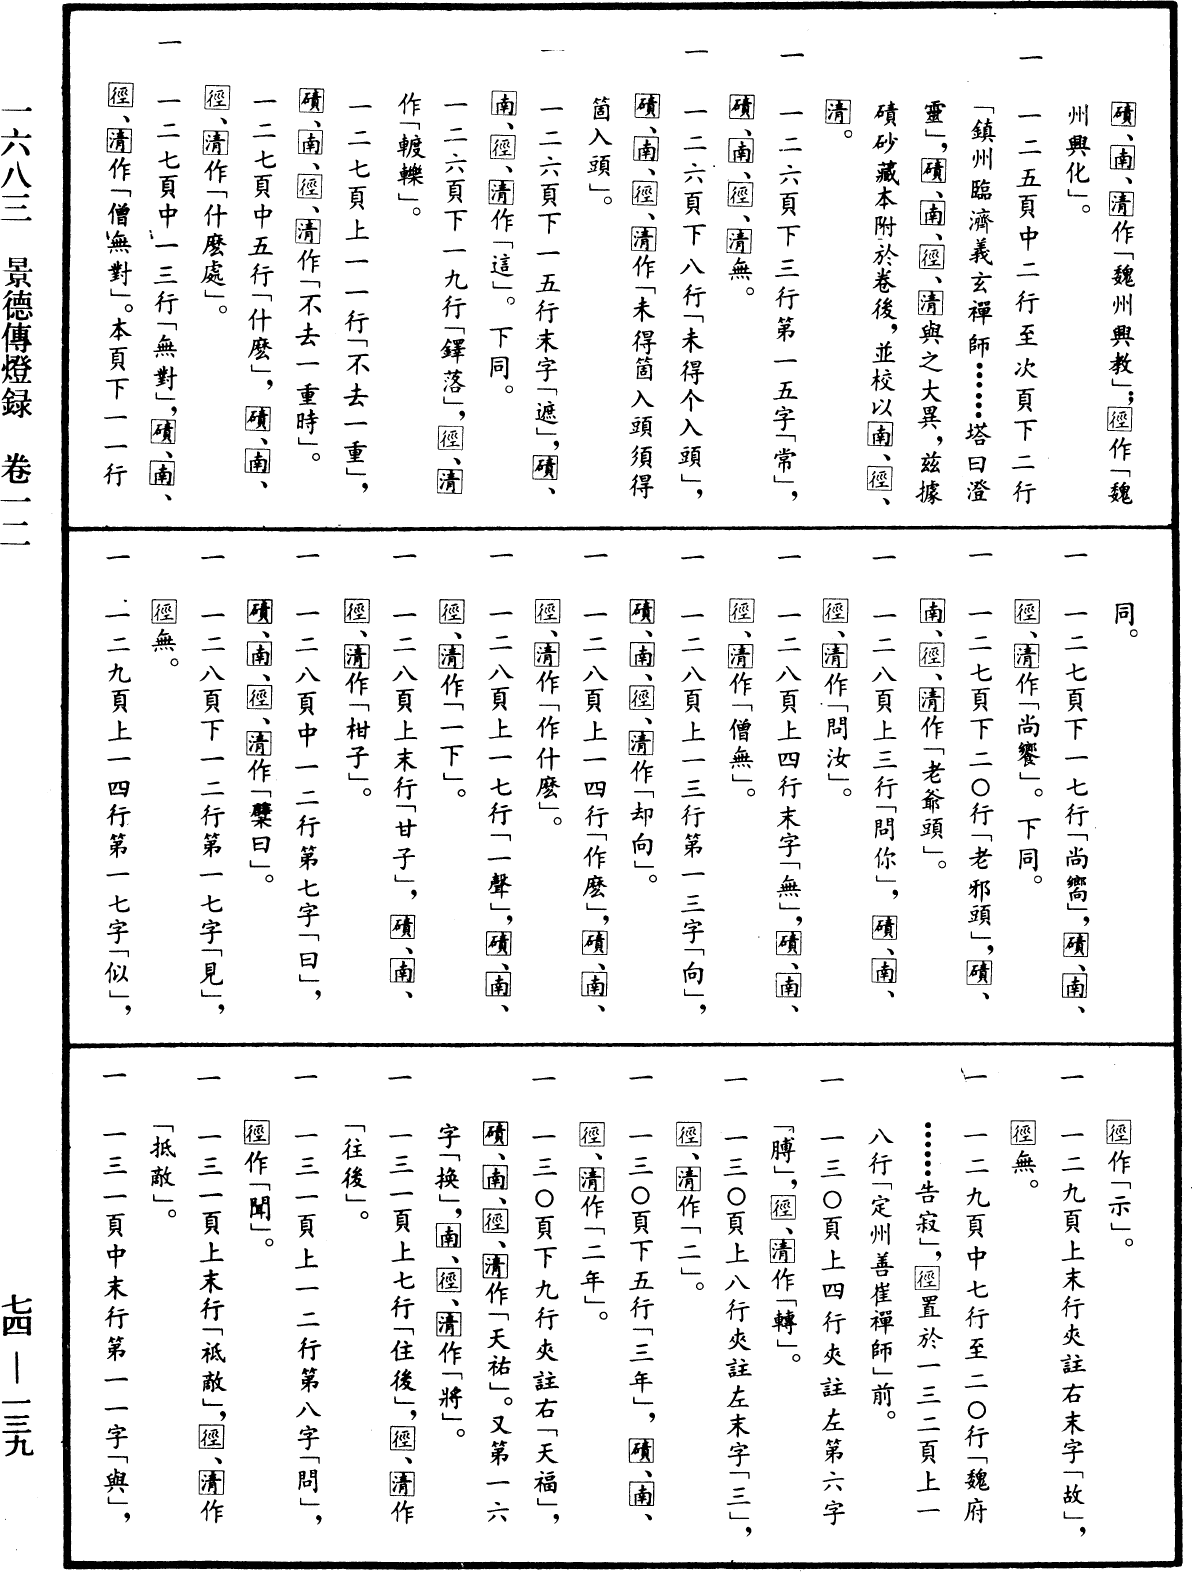 磧、南、清作「魏州興教」；徑作「魏
州興化」。
一 一二五頁中二行至次頁下二行
「鎮州臨濟義玄禪師……塔曰澄
靈」，磧、南、徑、清與之大異，兹據
磧砂藏本附於卷後，並校以南、徑、
清。
一 一二六頁下三行第一五字「常」，
磧、南、徑、清無。
一 一二六頁下八行「未得个入頭」，
磧、南、徑、清作「未得箇入頭須得
箇入頭」。
一 一二六頁下一五行末字「遮」，磧、
南、徑、清作「這」。下同。
一二六頁下一九行「鐸落」，徑、清
作「轆轢」。
一二七頁上一一行「不去一重」，
磧、南、徑、清作「不去一重時」。
一二七頁中五行「什麽」，磧、南、
徑、清作「什麽處」。
一 一二七頁中一三行「無對」，磧、南、
徑、清作「僧無對」。本頁下一一行
同。
一 一二七頁下一七行「尚嚮」，磧、南、
徑、清作「尚饗」。下同。
一 一二七頁下二〇行「老邪頭」，磧、
南、徑、清作「老爺頭」。
一 一二八頁上三行「問你」，磧、南、
徑、清作「問汝」。
一 一二八頁上四行末字「無」，磧、南、
徑、清作「僧無」。
一 一二八頁上一三行第一三字「向」，
磧、南、徑、清作「却向」。
一 一二八頁上一四行「作麽」，磧、南、
徑、清作「作什麽」。
一 一二八頁上一七行「一聲」，磧、南、
徑、清作「一下」。
一 一二八頁上末行「甘子」，磧、南、
徑、清作「柑子」。
一 一二八頁中一二行第七字「曰」，
磧、南、徑、清作「檗曰」。
一 一二八頁下一二行第一七字「見」，
徑無。
一 一二九頁上一四行第一七字「似」，
徑作「示」。
一 一二九頁上末行夾註右末字「故」，
徑無。
一 一二九頁中七行至二〇行「魏府
……告寂」，徑置於一三二頁上一
八行「定州善崔禪師」前。
一 一三〇頁上四行夾註左第六字
「膊」，徑、清作「轉」。
一 一三〇頁上八行夾註左末字「三」，
徑、清作「二」。
一 一三〇頁下五行「三年」，磧、南、
徑、清作「二年」。
一 一三〇頁下九行夾註右「天福」，
磧、南、徑、清作「天祐」。又第一六
字「换」，南、徑、清作「將」。
一 一三一頁上七行「住後」，徑、清作
「往後」。
一 一三一頁上一二行第八字「問」，
徑作「聞」。
一 一三一頁上末行「祇敵」，徑、清作
「抵敵」。
一 一三一頁中末行第一一字「與」，
一六八三 景德傳燈録 卷一二
七四—一三九